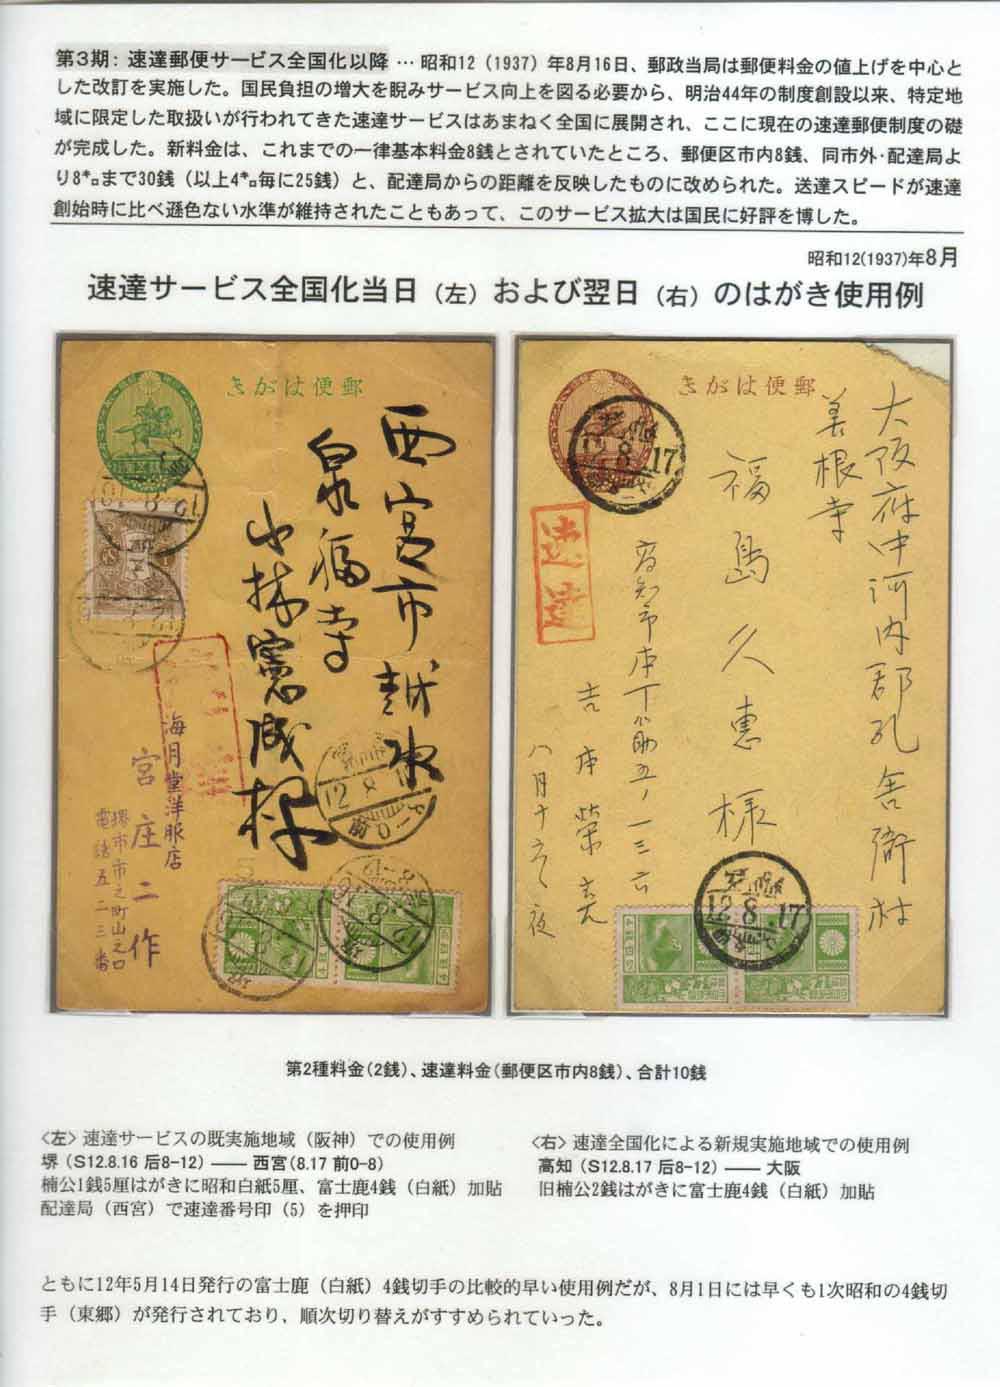 第3期：速達郵便サービス全国化以降 … 昭和12（1937）年8月16日、郵政当局は郵便料金の値上げを中心と
した改訂を実施した。国民負担の増大を睨みサービス向上を図る必要から、明治44年の制度創設以来、特定地
域に限定した取扱いが行われてきた速達サービスはあまねく全国に展開され、ここに現在の速達郵便制度の礎
が完成した。新料金は、これまでの一律基本料金8銭とされていたところ、郵便区市内8銭、同市外・配達局よ
り8㌔まで30銭（以上4㌔毎に25銭）と、配達局からの距離を反映したものに改められた。送達スピードが速達
創始時に比べ遜色ない水準が維持されたこともあって、このサービス拡大は国民に好評を博した。
昭和12(1937)年8月
速達サービス全国化当日（左）および翌日（右）のはがき使用例
きがは便郵
西宮市越水
泉福寺
小林憲成様
海月堂洋服店
宮庄二作
堺市市之町山之口
電話五二三番
12 8
前0-8
きがは便郵
12.8.17
速達
大阪府中河内郡孔舎衙村
善根寺
福島久恵様
高知市本丁筋五ノ一三六
吉本榮
八月十六夜
12.8.17
第2種料金(2銭)、速達料金(郵便区市内8銭)、合計10銭
<左> 速達サービスの既実施地域（阪神）での使用例
堺（S12.8.16 后8-12）―― 西宮(8.17 前0-8)
楠公1銭5厘はがきに昭和白紙5厘、富士鹿4銭（白紙）加貼
配達局（西宮）で速達番号印（5）を押印
<右> 速達全国化による新規実施地域での使用例
高知（S12.8.17 后8-12）―― 大阪
旧楠公2銭はがきに富士鹿4銭（白紙）加貼
ともに12年5月14日発行の富士鹿（白紙）4銭切手の比較的早い使用例だが、8月1日には早くも1次昭和の4銭切
手（東郷）が発行されており、順次切り替えがすすめられていった。